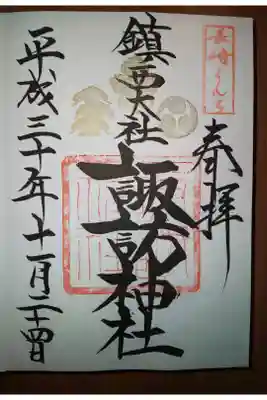 奉拝
鎮西大社
諏訪神社
平成三十年十一月二十四日